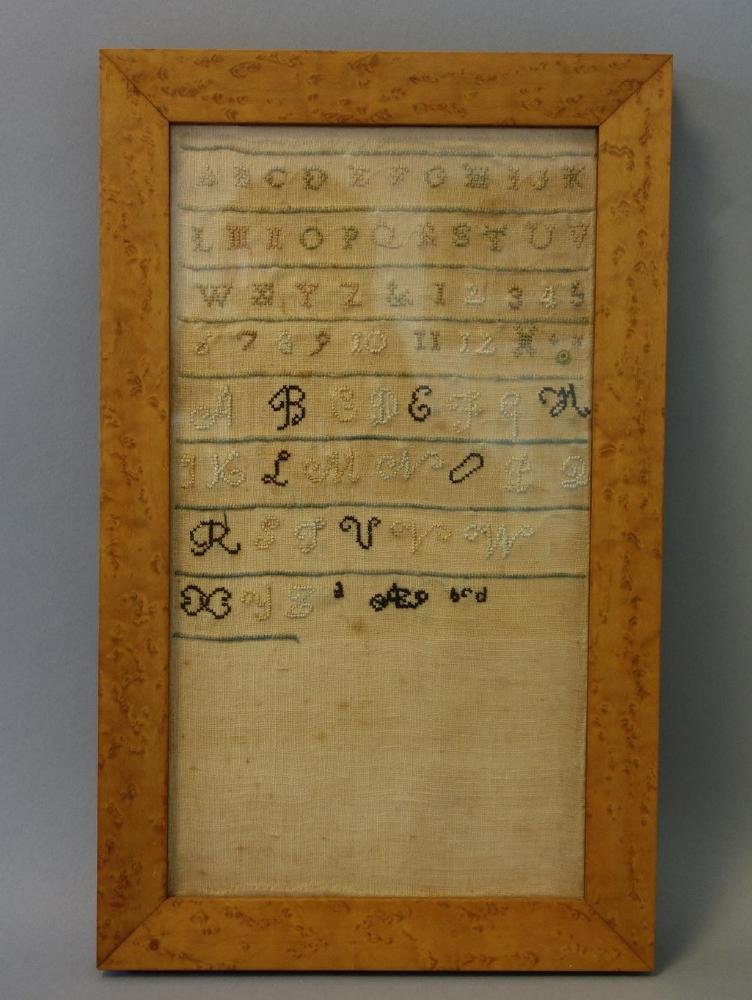 A B C D E F G H I J K
L M I O P Q R S T U V
W X Y Z & 1 2 3 4 5
6 7 8 9 10 11 12
A B C D E F G H
I K L M N O P Q
R S T U V W
X Y Z a b c d